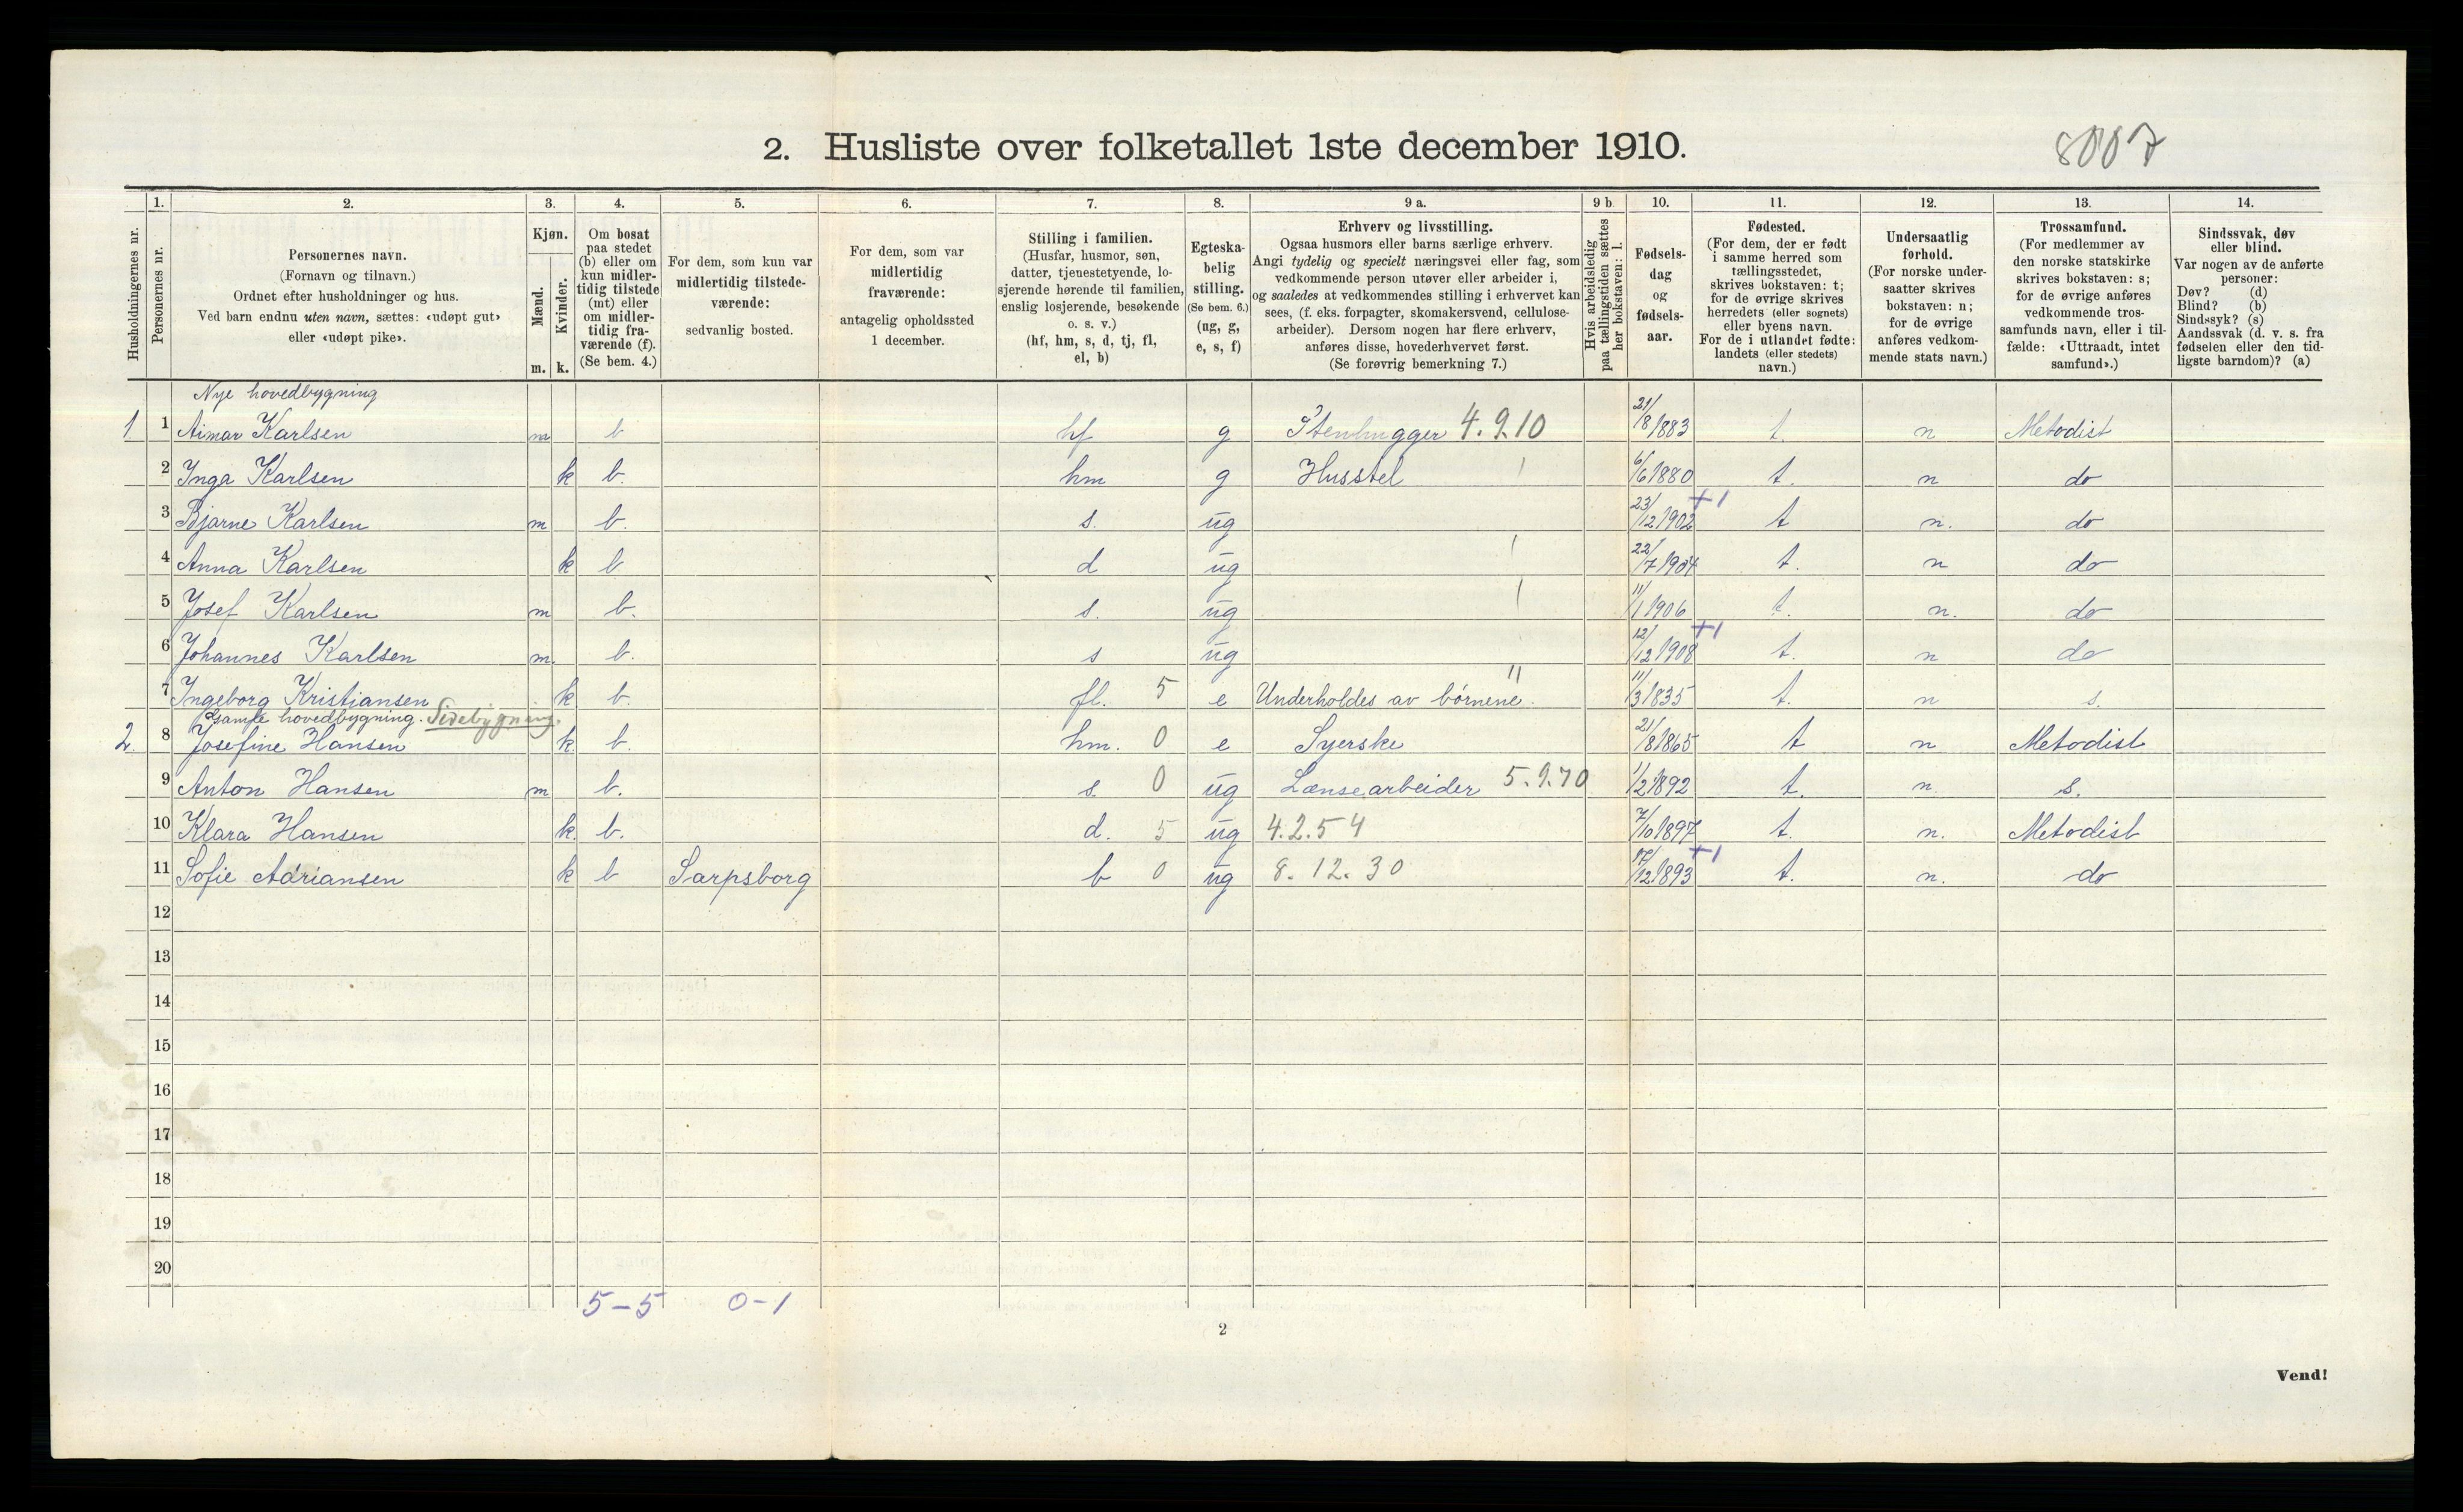 2. Husliste over folketallet 1ste december 1910.
8007
Husholdningernes nr.
1. Personernes nr.
2. Personernes navn.
(Fornavn og tilnavn.)
Ordnet efter husholdninger og hus.
Ved barn endnu uten navn, sættes: «udøpt gut»
eller «udøpt pike».
3. Kjøn.
Mænd. Kvinder.
m. k.
4. Om bosat
paa stedet
(b) eller om
kun midler-
tidig tilstede
(mt) eller
om midler-
tidig fra-
værende (f).
(Se bem. 4.)
5. For dem, som kun var
midlertidig tilstede-
værende:
sedvanlig bosted.
6. For dem, som var
midlertidig
fraværende:
antagelig opholdssted
1 december.
7. Stilling i familien.
(Husfar, husmor, søn,
datter, tjenestetyende, lo-
sjerende hørende til familien,
enslig losjerende, besøkende
o. s. v.)
(hf, hm, s, d, tj, fl,
el, b)
8. Egteska-
belig
stilling.
(Se bem. 6.)
(ug, g,
e, s, f)
9 a. Erhverv og livsstilling.
Ogsaa husmors eller barns særlige erhverv.
Angi tydelig og specielt næringsvei eller fag, som
vedkommende person utøver eller arbeider i,
og saaledes at vedkommendes stilling i erhvervet kan
sees, (f. eks. forpagter, skomakersvend, cellulose-
arbeider). Dersom nogen har flere erhverv,
anføres disse, hovederhvervet først.
(Se forøvrig bemerkning 7.)
9 b Hvis arbeidsledig
paa tællingstiden sættes
her bokstaven: l.
10. Fødsels-
dag
og
fødsels-
aar.
11. Fødested.
(For dem, der er født
i samme herred som
tællingsstedet,
skrives bokstaven: t;
for de øvrige skrives
herredets (eller sognets)
eller byens navn.
For de i utlandet fødte:
landets (eller stedets)
navn.)
12. Undersaatlig
forhold.
(For norske under-
saatter skrives
bokstaven: n;
for de øvrige
anføres vedkom-
mende stats navn.)
13. Trossamfund.
(For medlemmer av
den norske statskirke
skrives bokstaven: s;
for de øvrige anføres
vedkommende tros-
samfunds navn, eller i til-
fælde: «Uttraadt, intet
samfund».)
14. Sindssvak, døv
eller blind.
Var nogen av de anførte
personer:
Døv? (d)
Blind? (b)
Sindssyk? (s)
Aandssvak (d. v. s. fra
fødselen eller den tid-
ligste barndom)? (a)
Nye hovedbygning
1. 1 Aimar Karlsen m b hf g Stenhugger 4.9.10 21/8 1883 t. n Metodist
2 Inga Karlsen k b. hm g Husstel 6/6 1880 t. n do
3 Bjarne Karlsen m b. s. ug 23/12 1902 +1 t n. do
4 Anna Karlsen k b d ug 22/7 1904 t. n do
5 Josef Karlsen m b. s. ug 11/1 1906 t. n. do
6 Johannes Karlsen m. b. s ug 12/12 1908 +1 t. n do
7 Ingeborg Kristiansen k b. fl. 5 e Underholdes av børnene. 11/3 1835 t. n s.
Gamle hovedbygning. Sidebygning.
2. 8 Josefine Hansen k b. hm. 0 e Syerske 21/8 1865 t n Metodist
9 Anton Hansen m b. s. 0 ug Lænsearbeider 5.9.70 1/2 1892 t. n. s.
10 Klara Hansen k. b. d. 5 ug 4.2.54 7/10 1897 t. n. Metodist
11 Sofie Adriansen k b Sarpsborg b 0 ug 8.12.30 17/12 1893 +1 t. n. do
12
13
14
15
16
17
18
19
20
5-5 0-1
2
Vend!